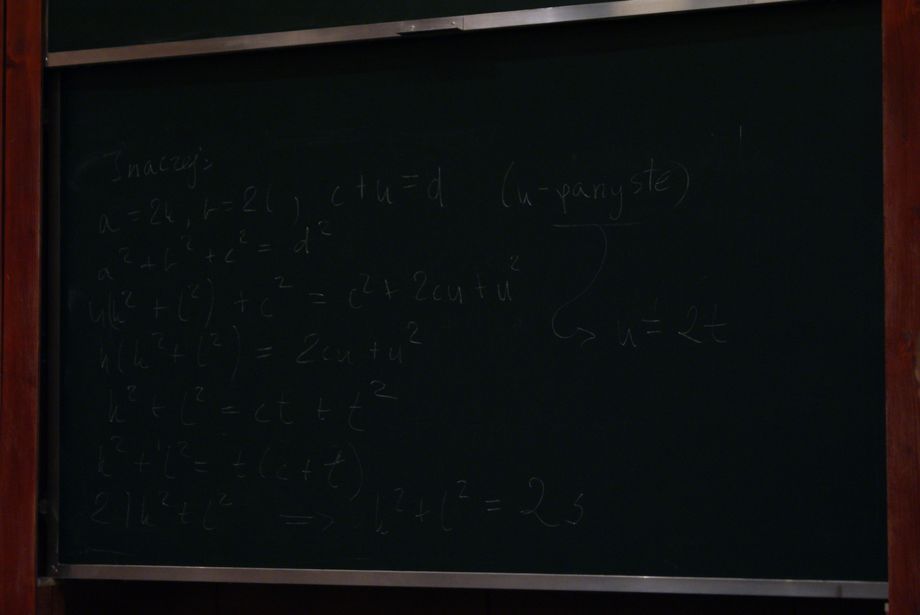 Inaczej:
a = 2k, b = 2l, c + u = d (u - parzyste)
a² + b² + c² = d²
4(k² + l²) + c² = c² + 2cu + u²
u = 2t
4(k² + l²) = 2cu + u²
k² + l² = ct + t²
k² + l² = t(c + t)
2 | k² + l² ⇒ k² + l² = 2s